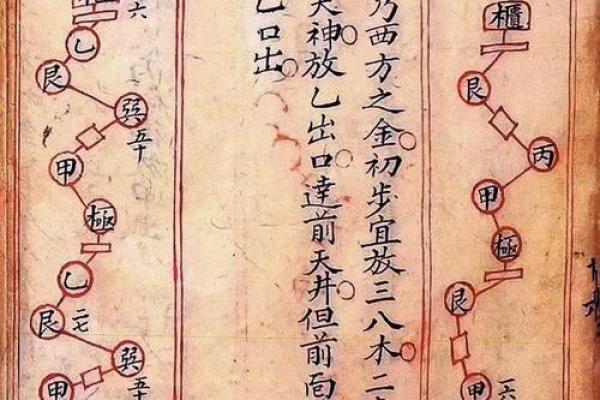 櫃
艮
丙
甲
極
艮
甲 一六
乃西方之金初步宜放三八木二
天神放乙出口達前天井但前
乙口出
六
乙
艮
巽 五十
甲
極
乙
艮 二七
巽 五十
甲